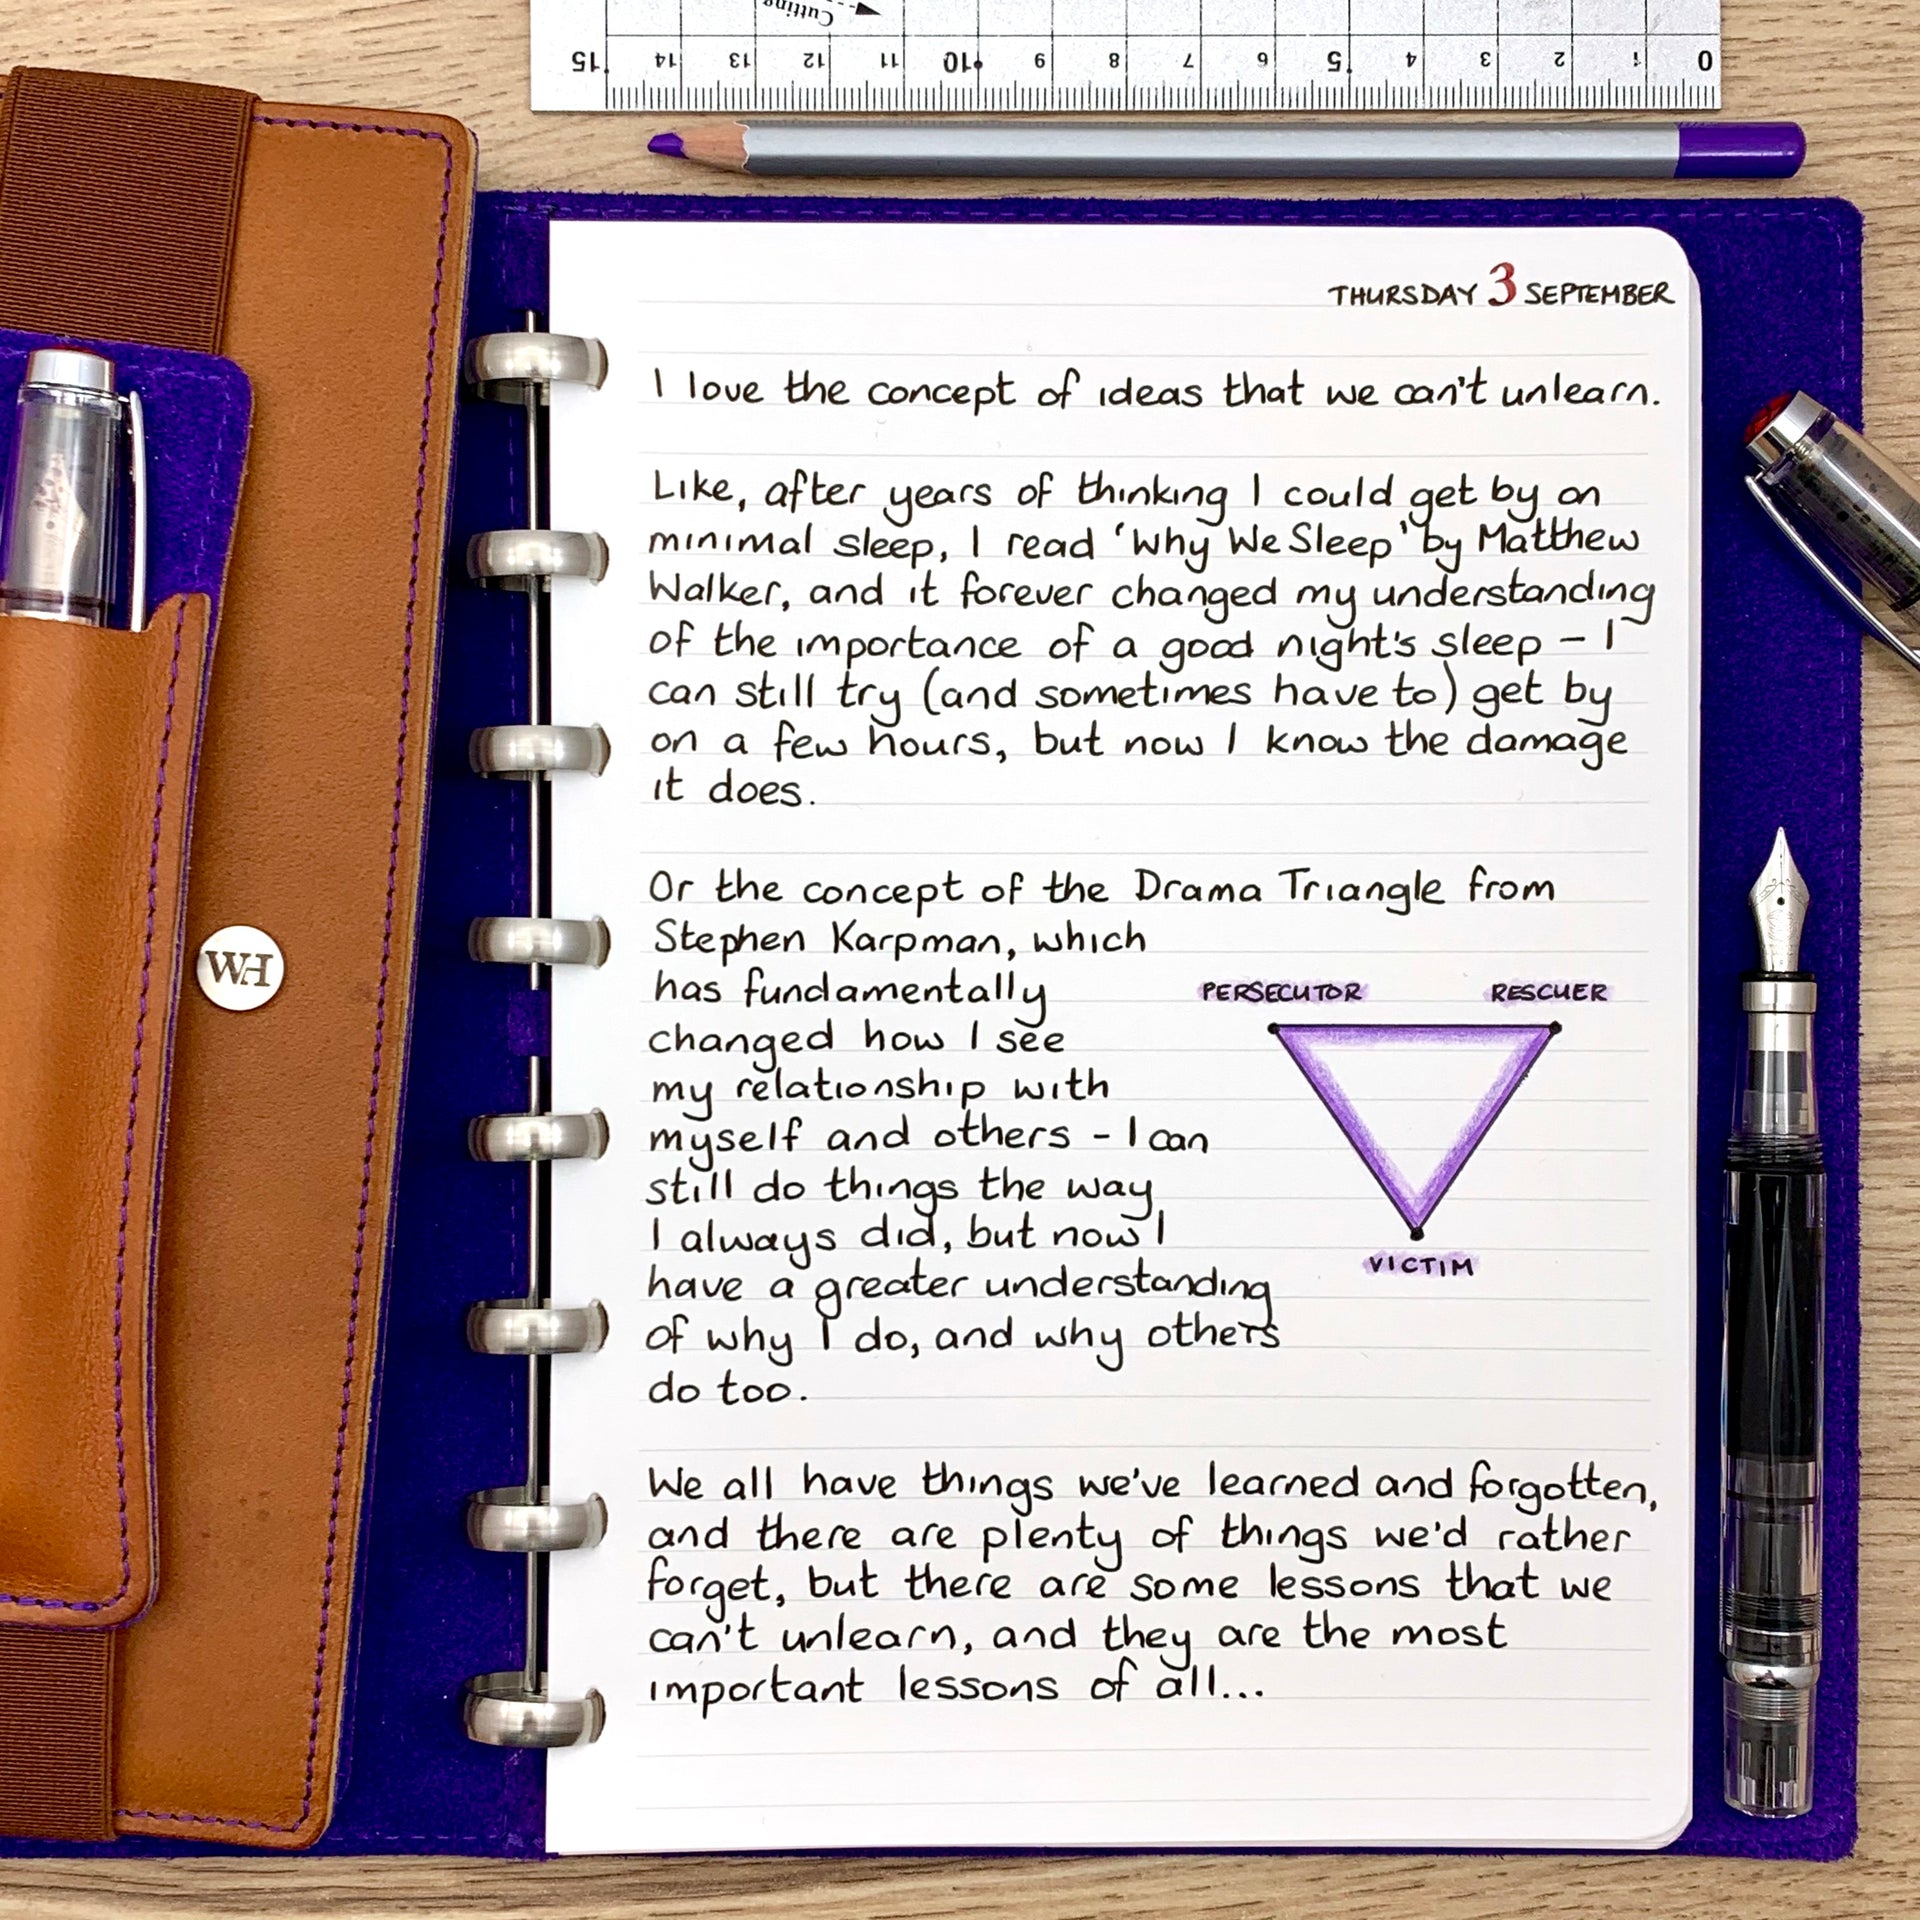 Cutting
15 14 13 12 11 10 9 8 7 6 5 4 3 2 1 0
THURSDAY 3 SEPTEMBER
I love the concept of ideas that we can't unlearn.
Like, after years of thinking I could get by on
minimal sleep, I read 'Why We Sleep' by Matthew
Walker, and it forever changed my understanding
of the importance of a good night's sleep – I
can still try (and sometimes have to) get by
on a few hours, but now I know the damage
it does.
Or the concept of the Drama Triangle from
Stephen Karpman, which
has fundamentally
changed how I see
my relationship with
myself and others - I can
still do things the way
I always did, but now I
have a greater understanding
of why I do, and why others
do too.
PERSECUTOR RESCUER
VICTIM
We all have things we've learned and forgotten,
and there are plenty of things we'd rather
forget, but there are some lessons that we
can't unlearn, and they are the most
important lessons of all...
WH